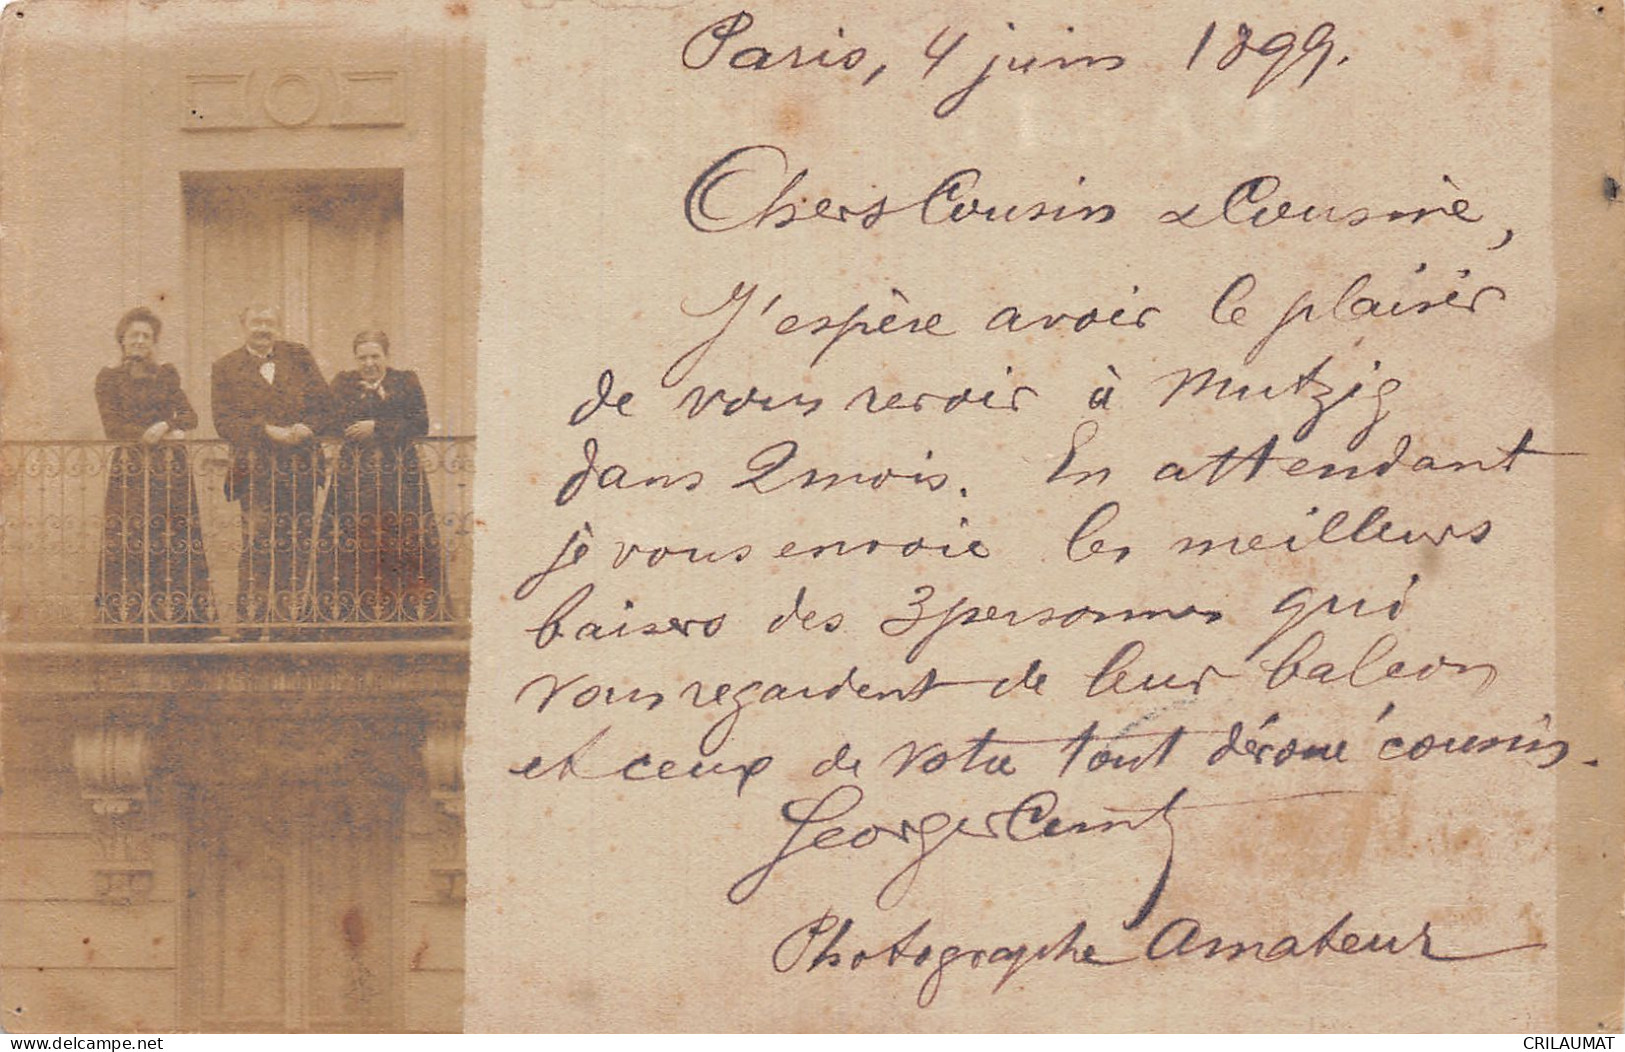 Paris, 4 juin 1899.
Chers Cousin & Cousine,
J'espère avoir le plaisir
de vous revoir à Mutzig
dans 2 mois. En attendant
je vous envoie les meilleurs
baisers des 3 personnes qui
vous regardent de leur balcon
et ceux de votre tout dévoué cousin.
Georges
Photographe Amateur
www.delcampe.net
CRILAUMAT